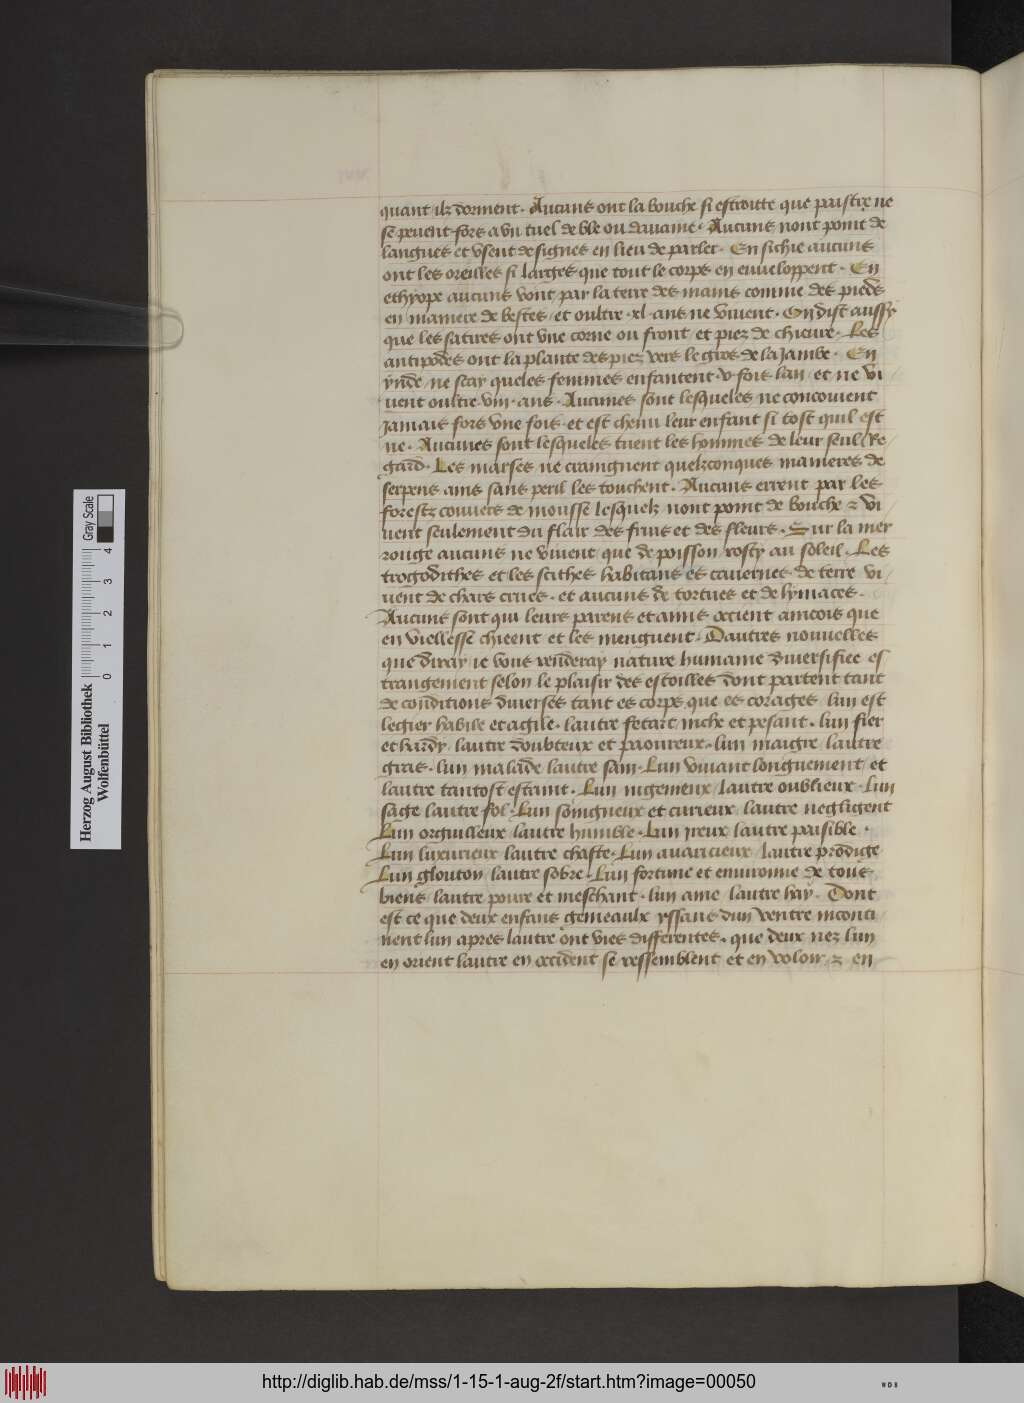 quant ilz dorment · Aucuns ont la bouche si estroitte que paistre ne
se peuent fors a vn tuel de ble ou dauaine · Aucuns nont point de
langues et vsent de signes en lieu de parler · En sichie aucuns
ont les oreilles si larges que tout le corps en enueloppent · En
ethyope aucuns vont par la terre des mains comme des pieds
en maniere de bestes / et oultre · xl · ans ne viuent · On dist aussy
que les satires ont vne corne ou front / et piez de chieure · Les
antipodes ont la plante des piez vers le gros de la Jambe · En
ynde / ne scay queles femmes enfantent · v · fois lan / et ne vi
uent oultre · viii · ans · Aucunes sont lesqueles ne concoiuent
Jamais fors vne fois · et est chenu leur enfant si tost quil est
ne · Aucunes sont lesqueles tuent les hommes de leur seul Re
gard · Les marses ne craingnent quelzconques manieres de
serpens ains sans peril les touchent · Aucuns errent par les
forestz couuers de mousse lesquelz nont point de bouche & vi
uent seulement du flair des fruis et des fleurs · Sur la mer
rouge aucuns ne viuent que de poisson rosty au soleil · Les
trogodithes et les scithes habitans es cauernes de terre vi
uent de chars crues · et aucuns de tortues et de lymaces ·
Aucuns sont qui leurs parens et amis occient aincois que
en viellesse chieent et les menguent · Dautres nouuelles
que diray ie vous rendray nature humaine diuersifiee es
trangement selon le plaisir des estoilles dont partent tant
de conditions diuerses tant es corps que es corages / lun est
legier habile et agile · lautre fetart niche et pesant · lun fier
et hardy / lautre doubteux et paoureux · lun maigre / lautre
gras · lun malade lautre sain · Lun viuant longuement / et
lautre tantost estaint · Lun ingenieux / lautre oublieux · Lun
sage lautre fol · Lun soingneux et curieux / lautre negligent
Lun orguilleux / lautre humble · Lun jreux lautre paisible ·
Lun luxurieux / lautre chaste · Lun auaricieux / lautre prodige
Lun glouton / lautre sobre · Lun fortune et enuironne de tous
biens / lautre poure et meschant · lun ame / lautre hay · Dont
est ce que deux enfans gemeaulx yssans dun ventre inconti
nent lun apres lautre ont vies differentes · que deux nez lun
en orient lautre en occident se ressemblent et en voloir & en
Herzog August Bibliothek
Wolfenbüttel
0 1 2 3 4
Gray Scale
http://diglib.hab.de/mss/1-15-1-aug-2f/start.htm?image=00050
WDB